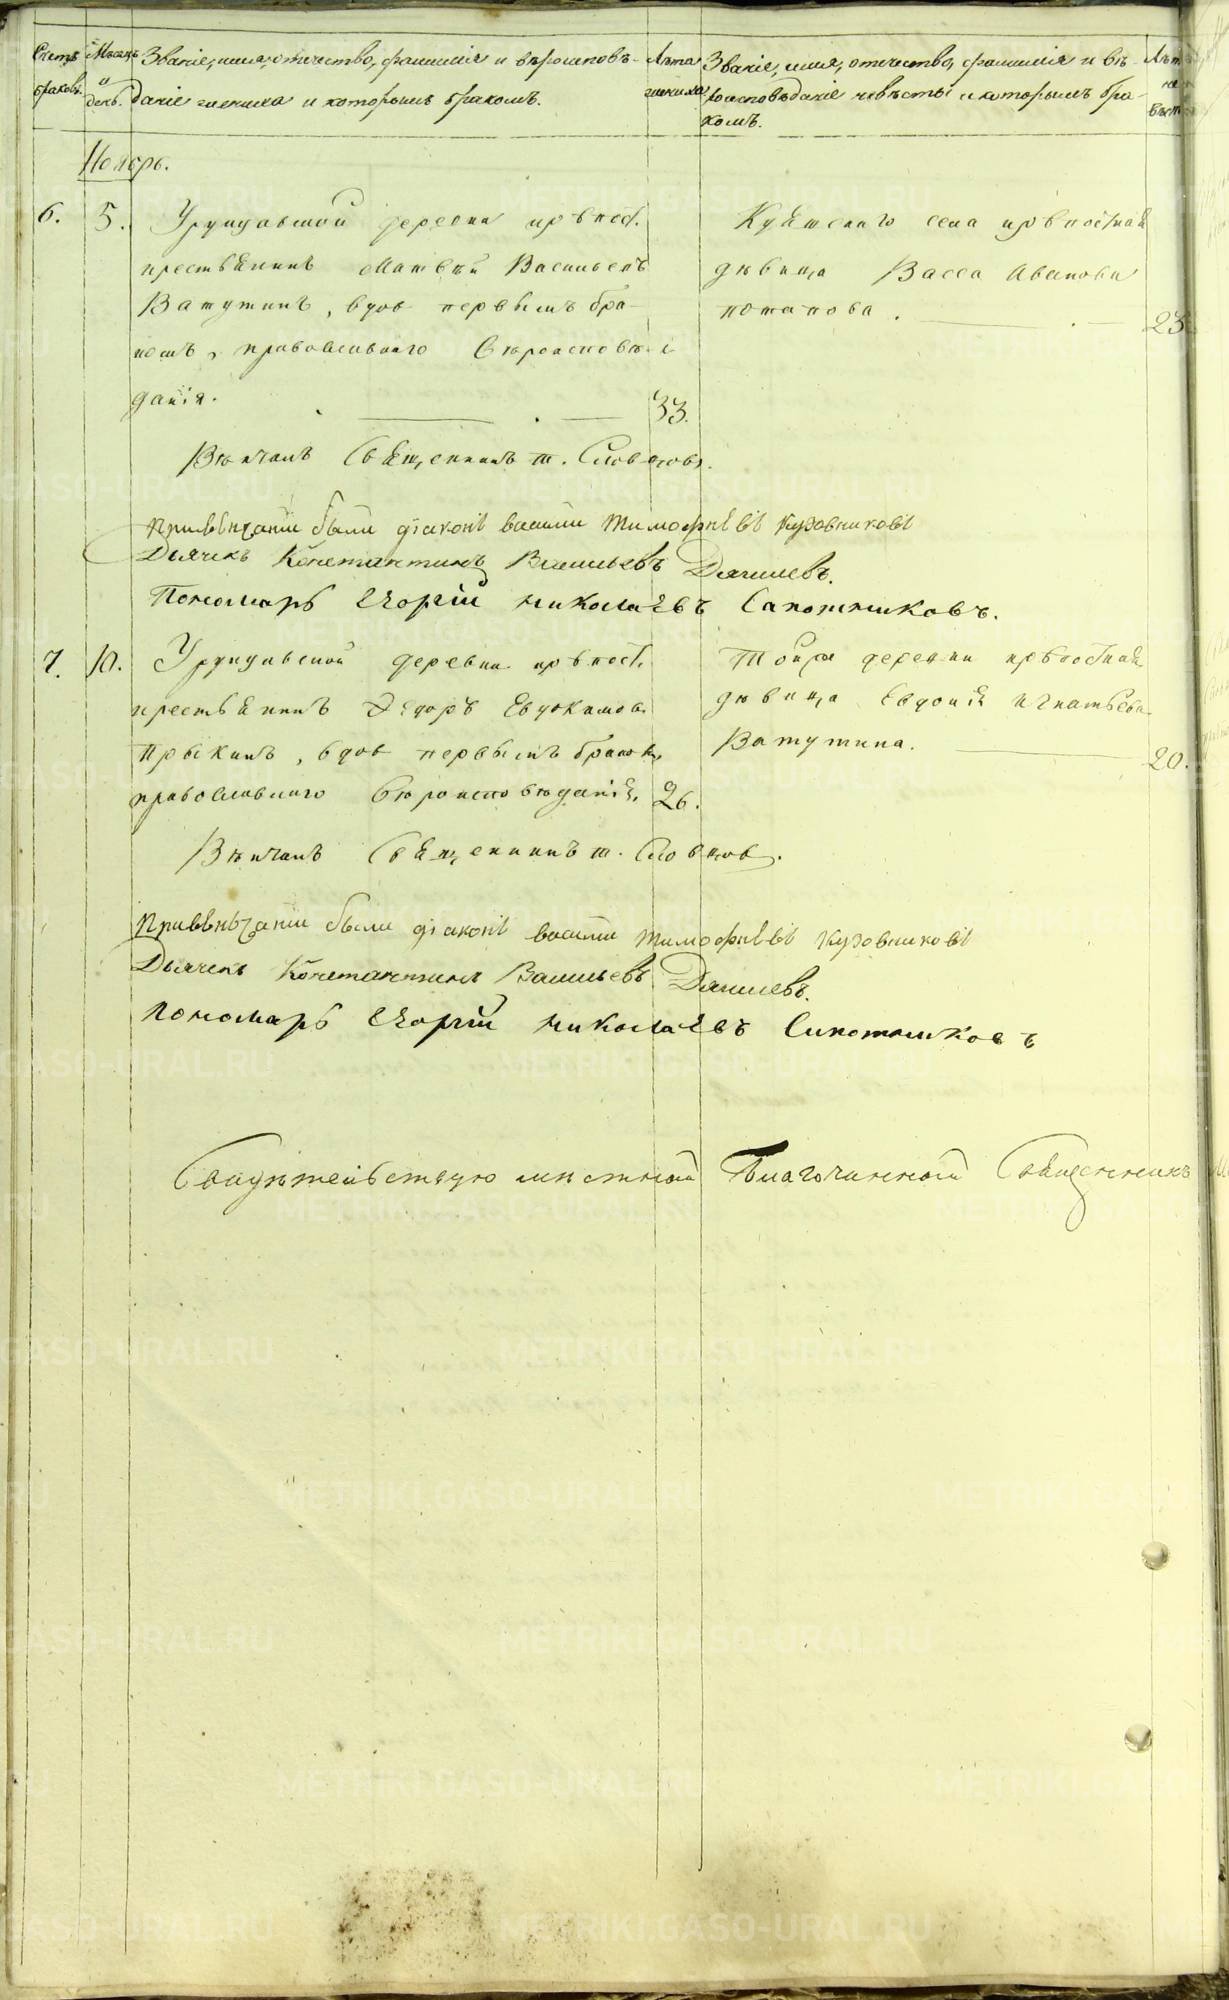 Счетъ браковъ.
Мѣсяцъ и день.
Званіе, имя, отчество, фамилія и вѣроисповѣ-
даніе жениха и которымъ бракомъ.
Лѣта жениха.
Званіе, имя, отчество, фамилія и вѣ-
роисповѣданіе невѣсты и которымъ бра-
комъ.
Ноябрь.
6. 5.
деревни крѣпост.
крестьянинъ Матвѣй Васильевъ
Ватутинъ, вдов первымъ бра-
комъ, православнаго вѣроисповѣ-
данія. 33.
села крѣпостная
дѣвица Васса Иванова
Потапова. 23
Вѣнчалъ Священникъ т. Словцовъ.
При вѣнчаніи были діаконъ Василий Тимофѣевъ Кузовниковъ
Дьячекъ Константинъ Васильевъ Дягилевъ.
Пономарь Георгій Николаевъ Сапожниковъ.
7. 10.
деревни крѣпост.
крестьянинъ Ѳедоръ Евдокимовъ
вдов первымъ бракомъ,
православнаго вѣроисповѣданія, 26.
Тойже деревни крѣпостная
дѣвица Евдокія Игнатьева
Ватутина. 20.
Вѣнчалъ Священникъ т. Словцовъ.
При вѣнчаніи были діаконъ Василий Тимофѣевъ Кузовниковъ
Дьячекъ Константинъ Васильевъ Дягилевъ.
Пономарь Георгій Николаевъ Сапожниковъ
Свидѣтельствую мѣстной Благочинной Священникъ
METRIKI.GASO-URAL.RU